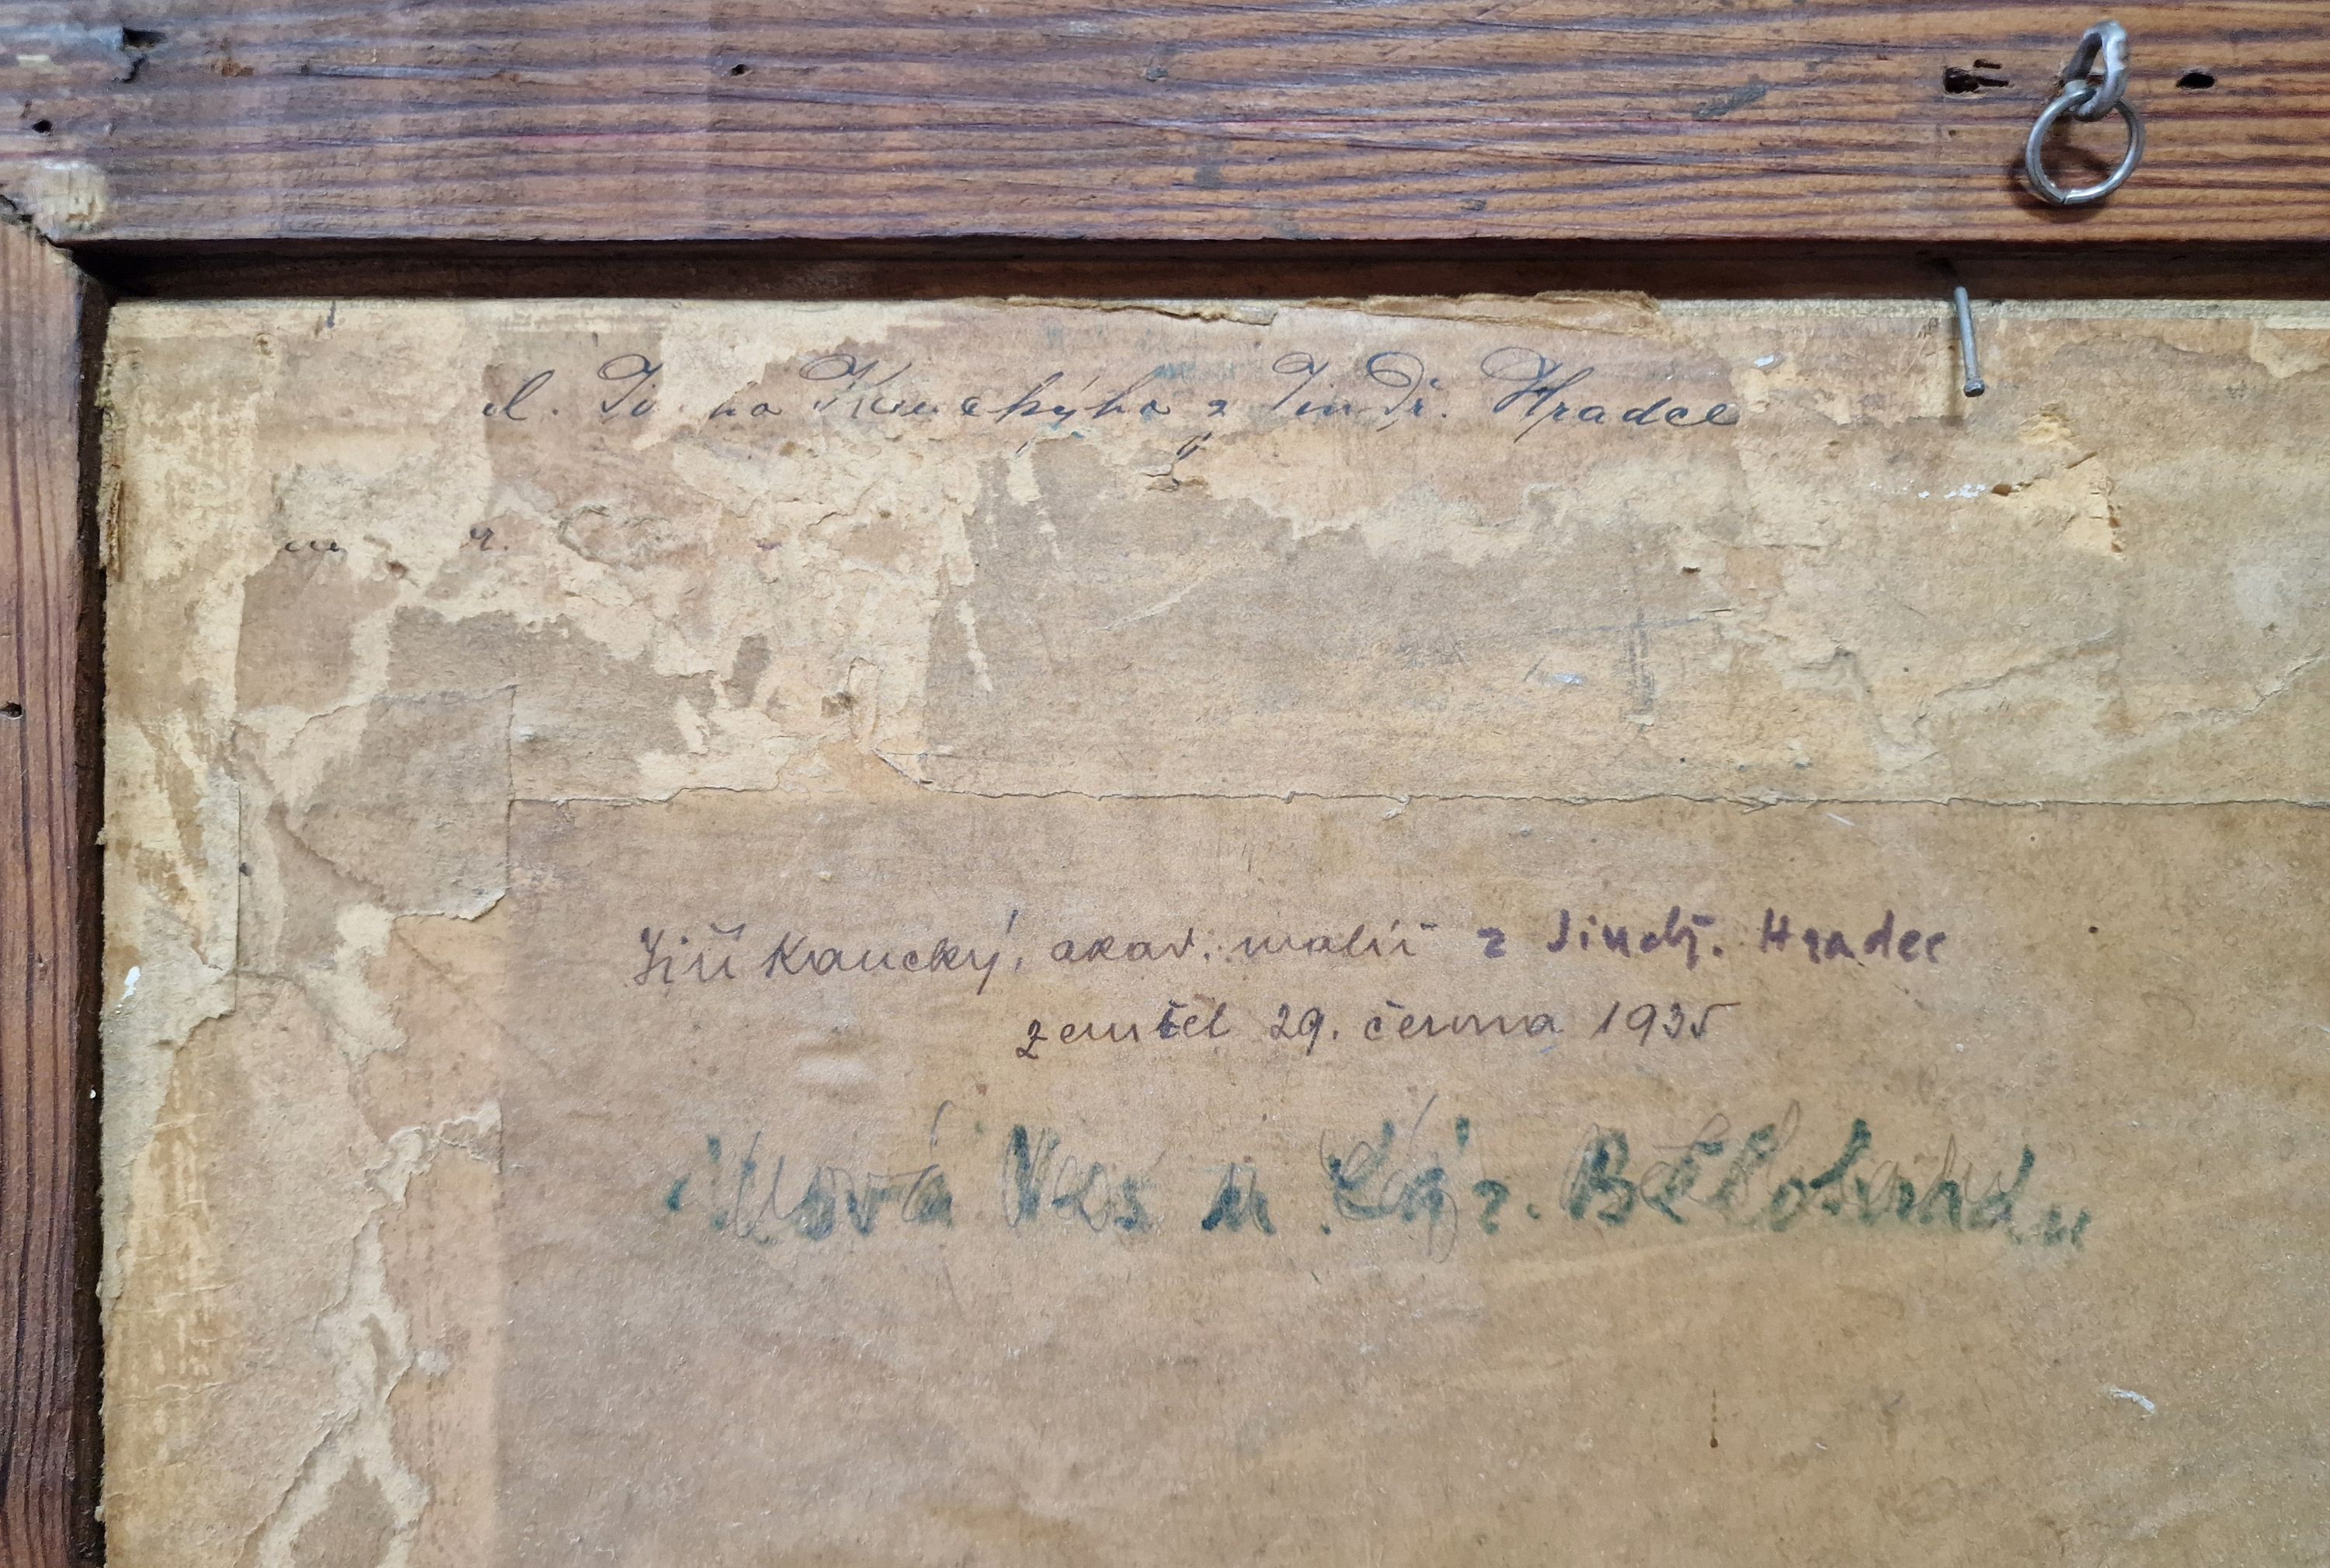 Kauckýho z Jindř. Hradce
Jiří Kaucký, akad. malíř z Jindř. Hradec
zemřel 29. června 1935
Nová Ves u Láz. Bělohradu